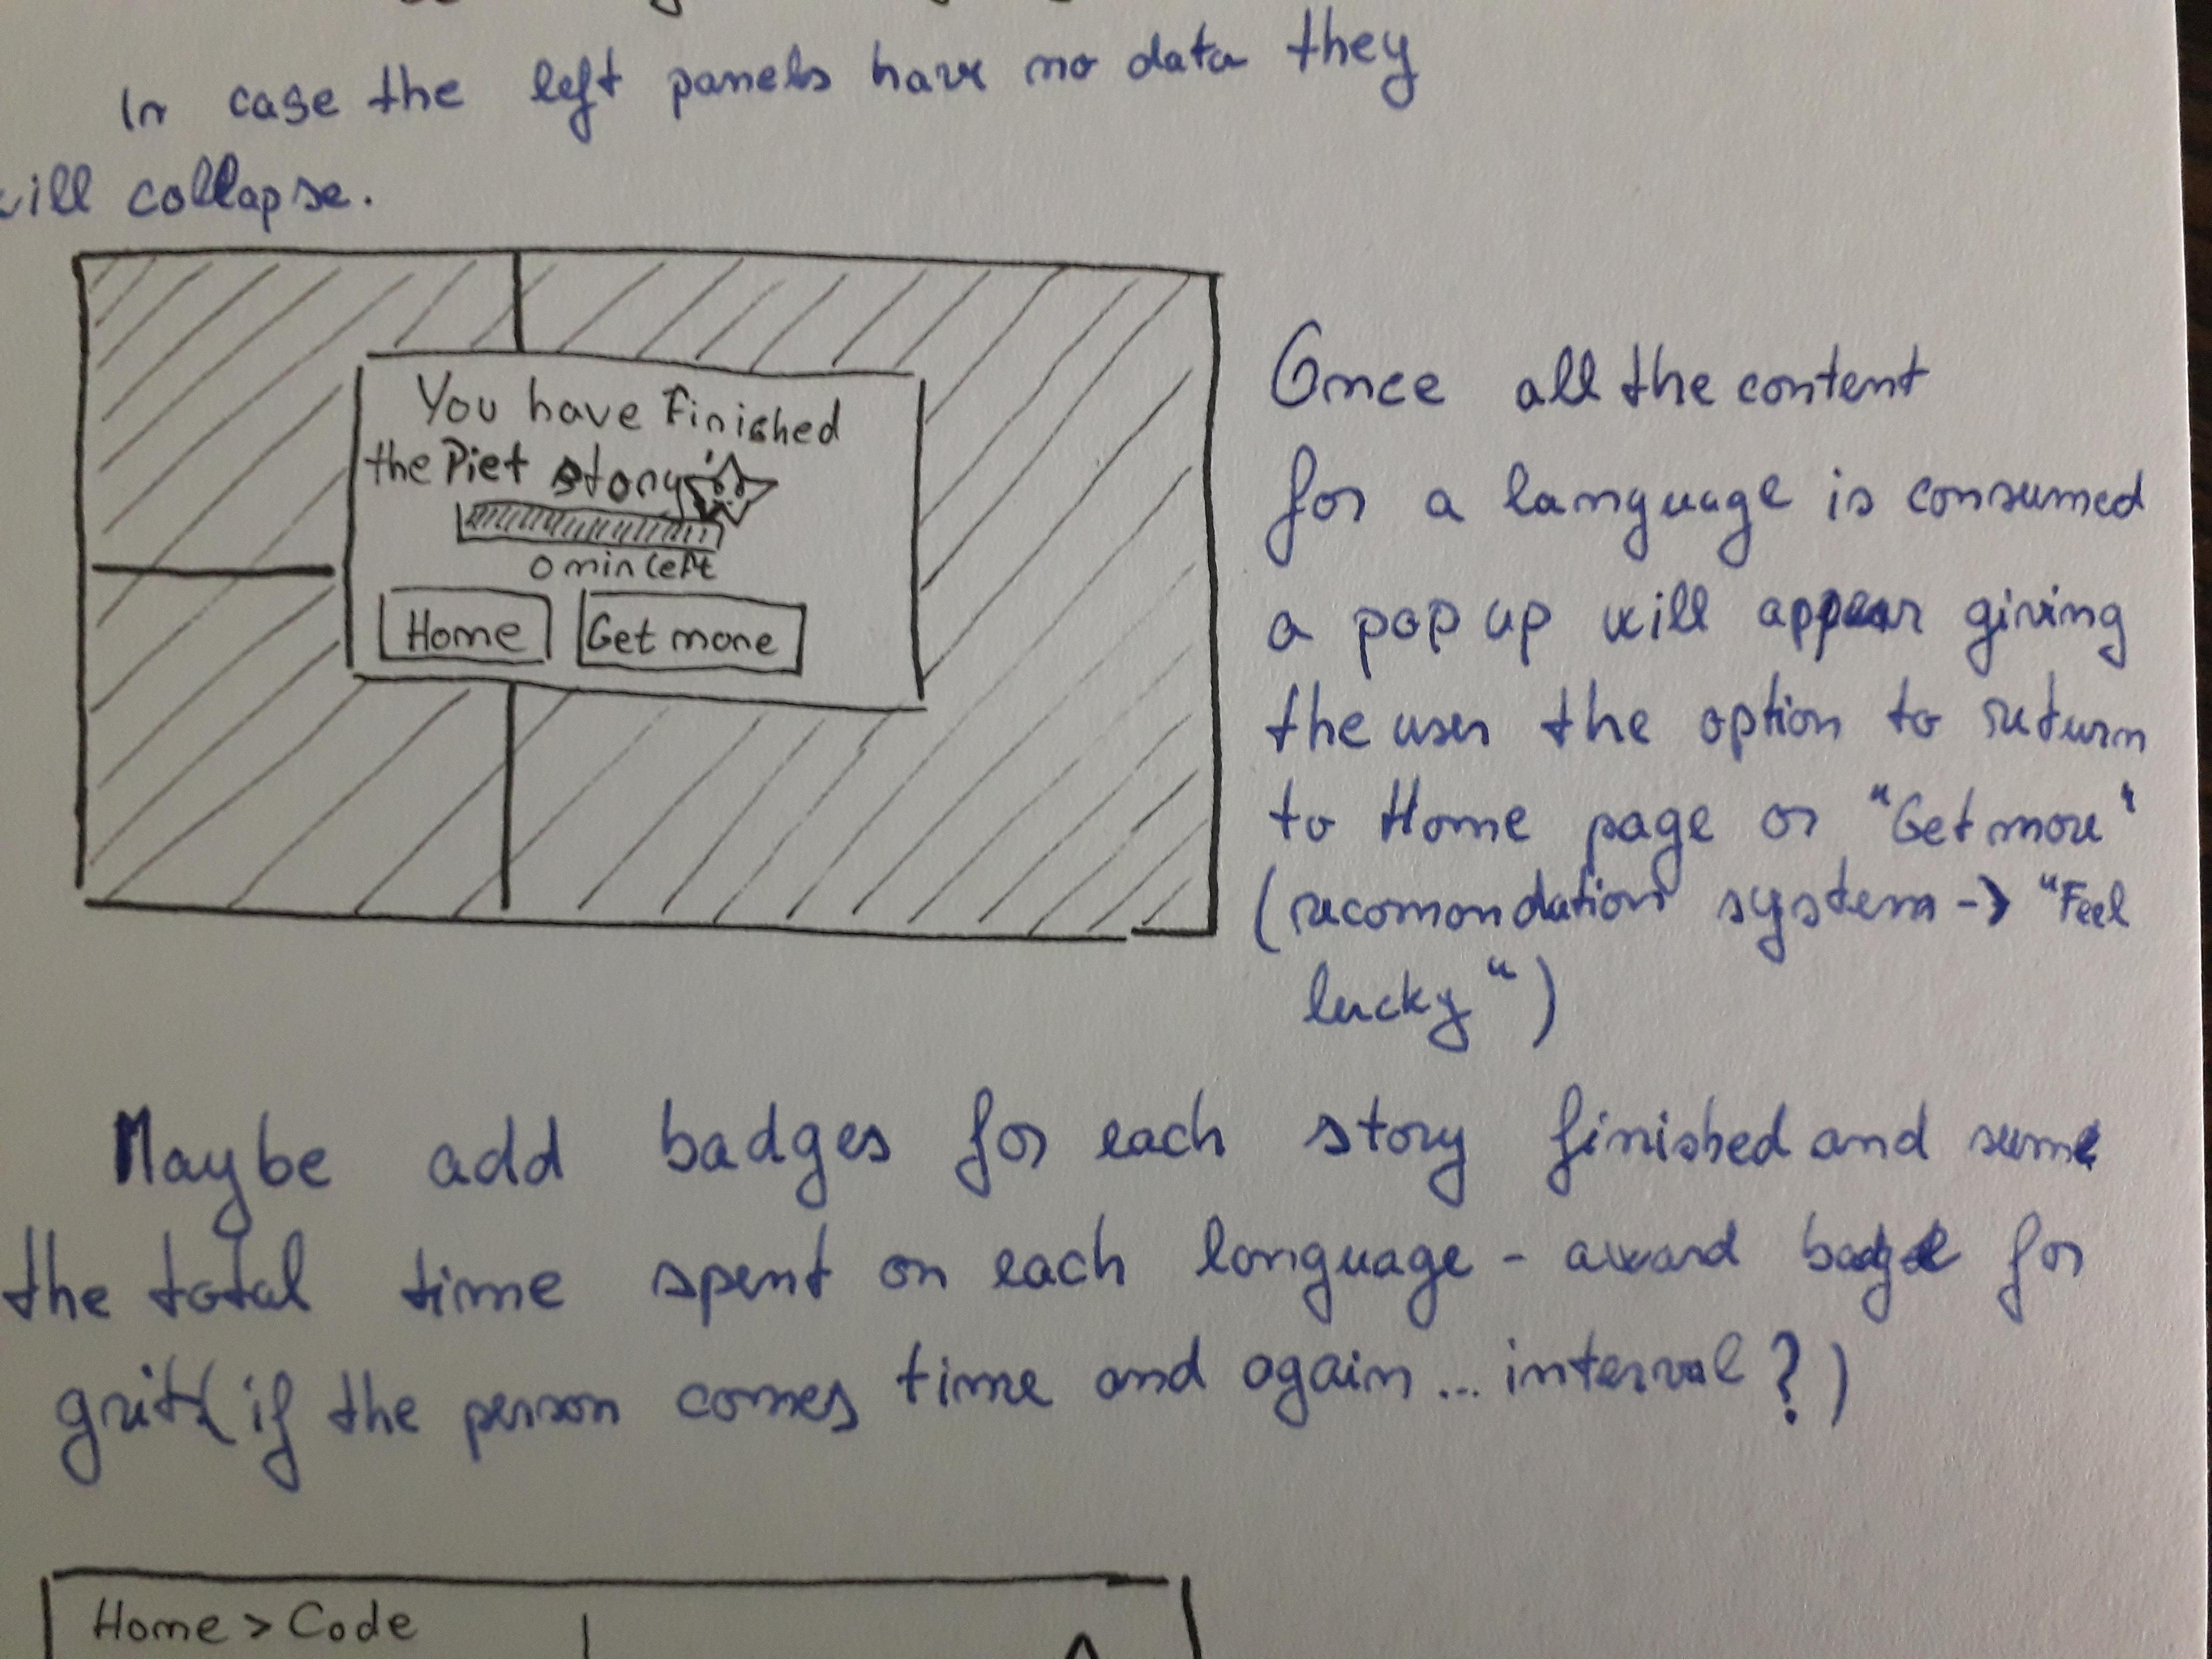 In case the left panels have no data they
will collapse.
You have Finished
the Piet story
0 min left
Home
Get more
Once all the content
for a language is consumed
a pop up will appear giving
the user the option to return
to Home page or "Get more"
(recomondation system -> "Feel
lucky")
Maybe add badges for each story finished and sume
the total time spent on each language - award badge for
grit (if the person comes time and again... interval?)
Home > Code